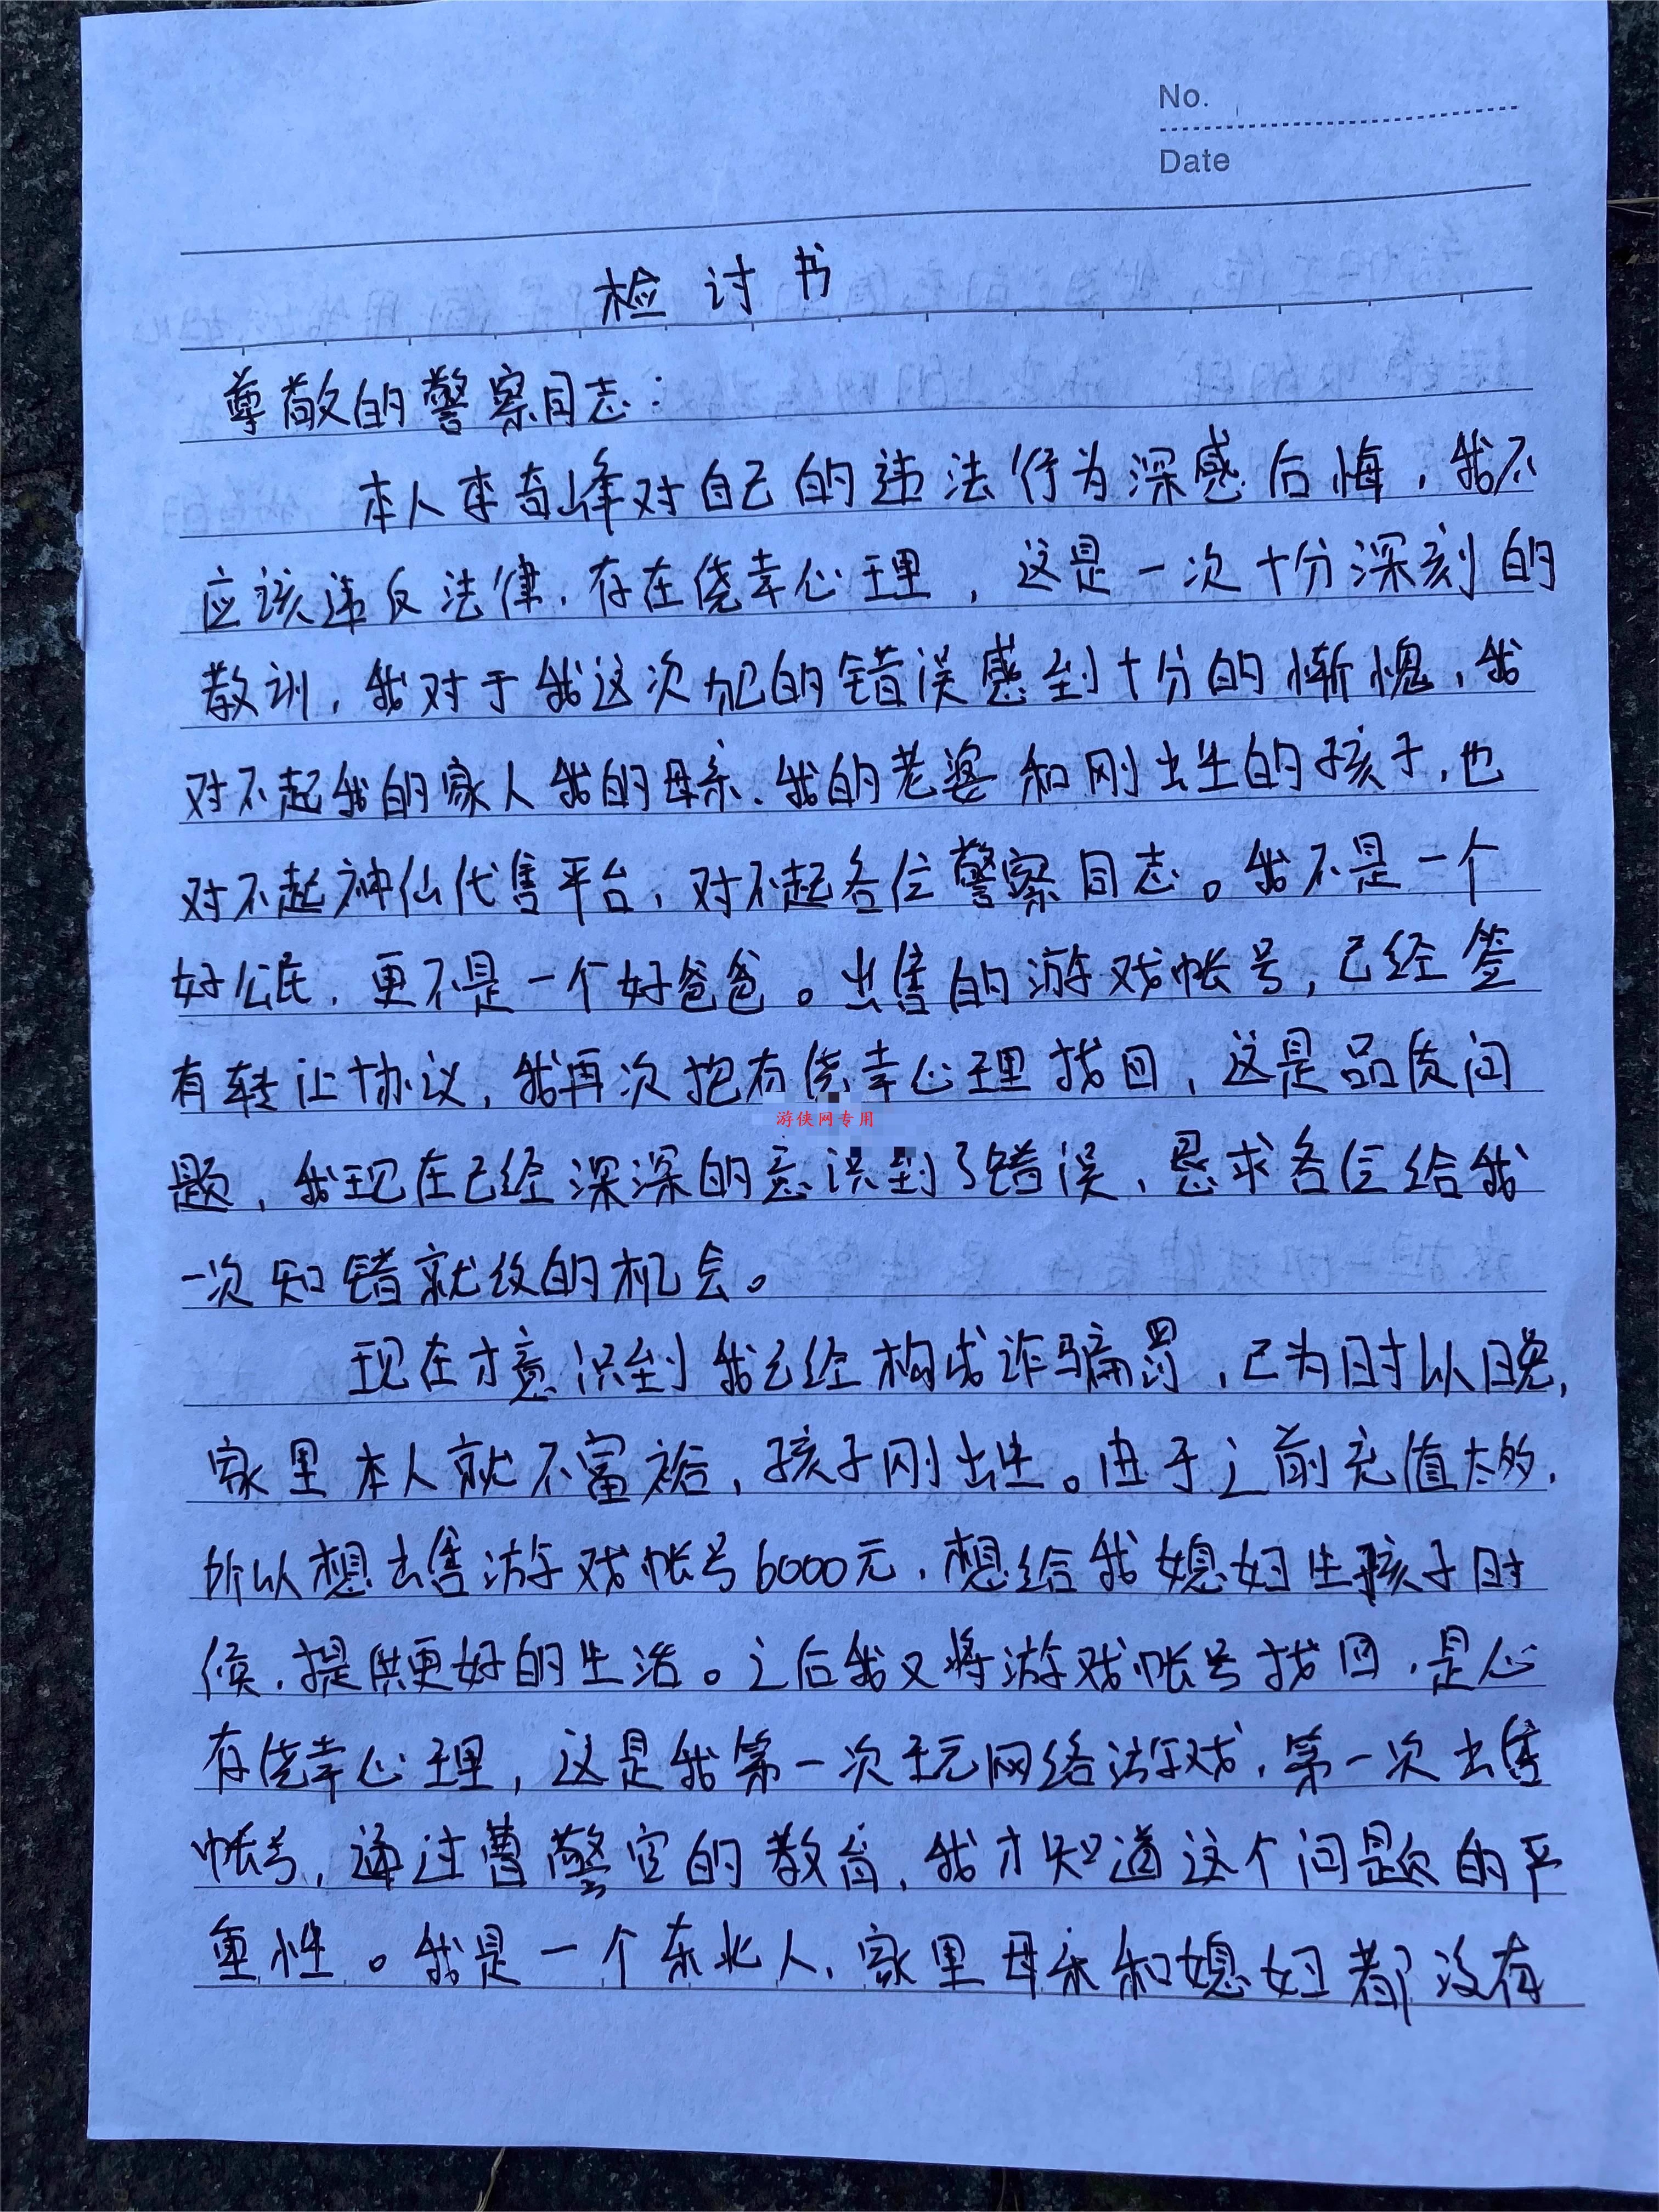 No.
Date
检讨书
尊敬的警察同志：
本人李奇峰对自己的违法行为深感后悔，我不
应该违反法律，存在侥幸心理，这是一次十分深刻的
教训，我对于我这次犯的错误感到十分的惭愧，我
对不起我的家人我的母亲、我的老婆和刚出生的孩子，也
对不起神仙代售平台，对不起各位警察同志。我不是一个
好公民，更不是一个好爸爸。出售的游戏帐号，已经签
有转让协议，我再次抱有侥幸心理找回，这是品质问
游侠网专用
题，我现在已经深深的意识到了错误，恳求各位给我
一次知错就改的机会。
现在才意识到我已经构成诈骗罚，已为时以晚，
家里本人就不富裕，孩子刚出生。由于之前充值太多，
所以想出售游戏帐号6000元，想给我媳妇生孩子时
候，提供更好的生活。之后我又将游戏帐号找回，是心
存侥幸心理，这是我第一次玩网络游戏，第一次出售
帐号，通过曹警官的教育，我才知道这个问题的严
重性。我是一个东北人，家里母亲和媳妇都没有